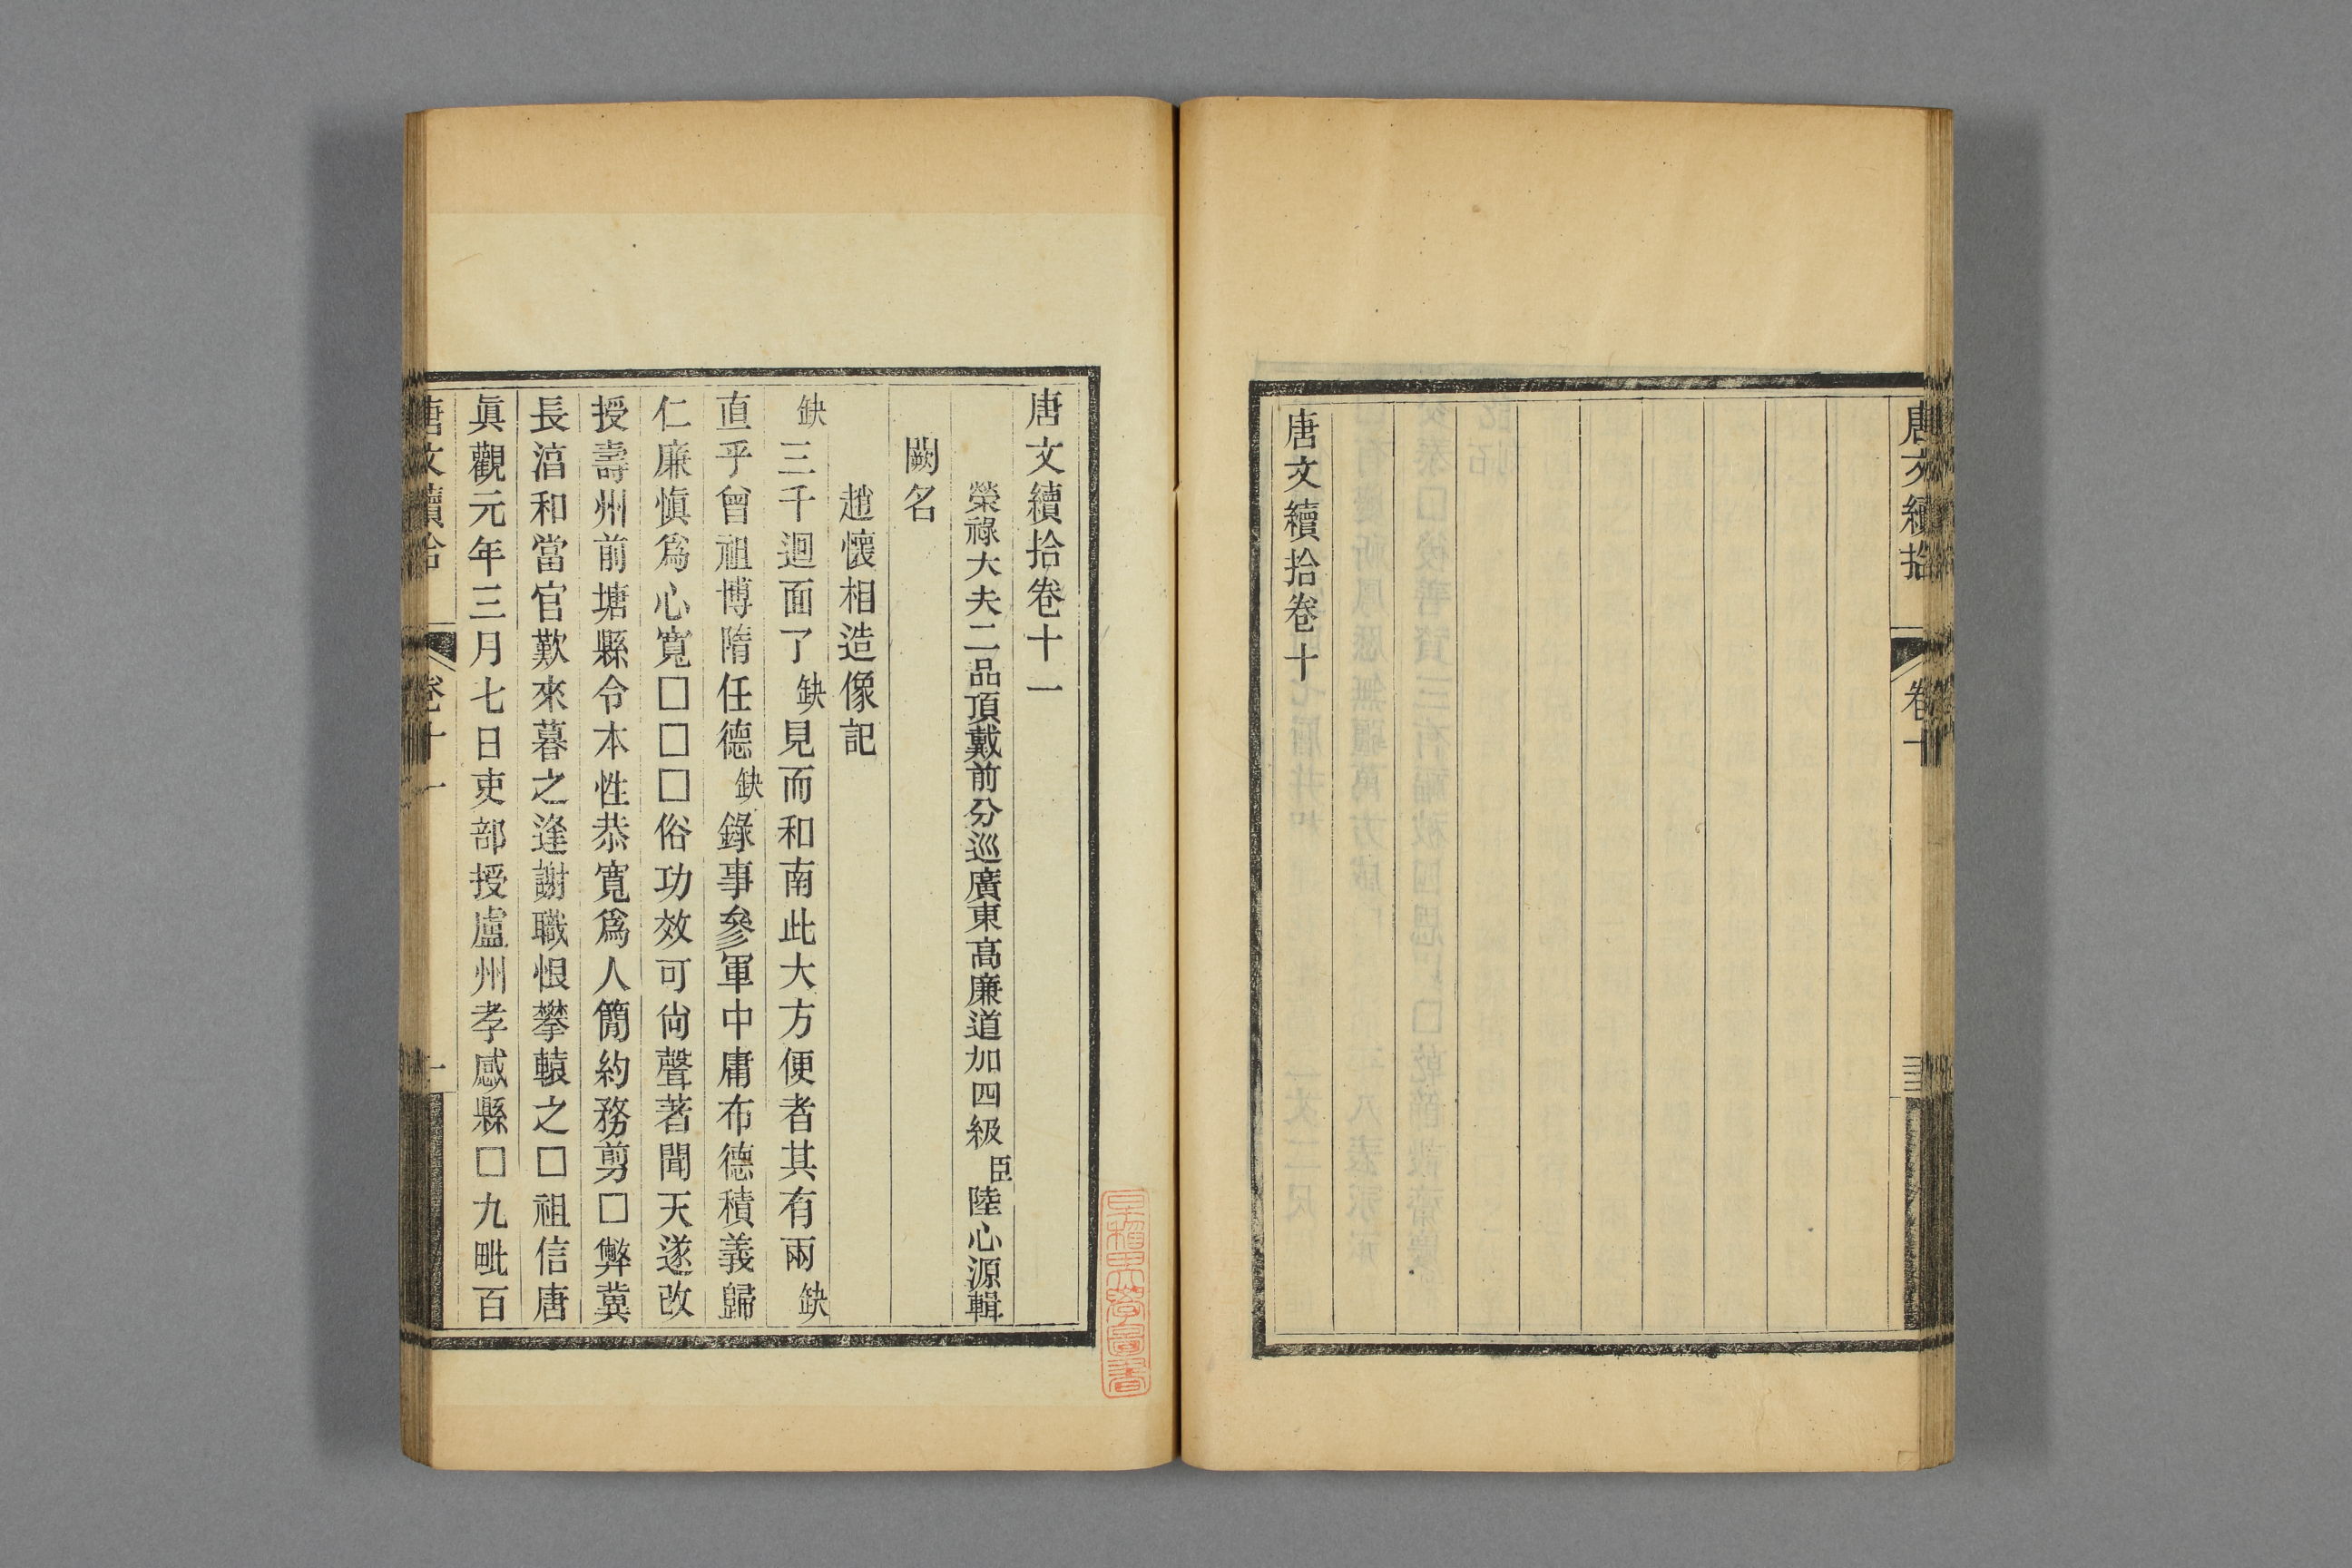 唐文續拾
卷十
唐文續拾卷十
唐文續拾卷十一
榮祿大夫二品頂戴前分巡廣東高廉道加四級臣陸心源輯
闕名
趙懷相造像記
缺三千迴面了缺見而和南此大方便者其有兩缺
直乎曾祖博隋任德缺錄事參軍中庸布德積義歸
仁廉愼爲心寬□□□俗功效可尙聲著聞天遂改
授壽州前塘縣令本性恭寬爲人簡約務剪□弊冀
長湻和當官歎來暮之逢謝職恨攀轅之□祖信唐
眞觀元年三月七日吏部授盧州孝感縣□九毗百
唐文續拾
卷十一
一
早稻田大學圖書